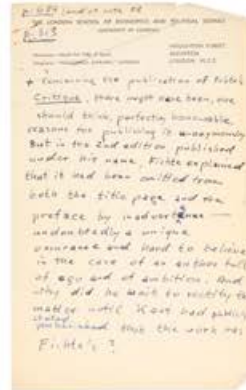 THE LONDON SCHOOL OF ECONOMICS AND POLITICAL SCIENCE
HOUGHTON STREET
LONDON W.C.2
+ Concerning the publication of Fichte's
Critique, there might have been, one
should think, perfectly honourable
reasons for publishing it anonymously.
But in the 2nd edition published
under his name, Fichte explained
that it had been omitted from
both the title page and the
preface by inadvertence —
undoubtedly a unique
occurrence and hard to believe
in the case of an author full
of ego and of ambition. And
why did he wait to rectify the
matter until Kant had publicly
stated
that the work was
Fichte's?